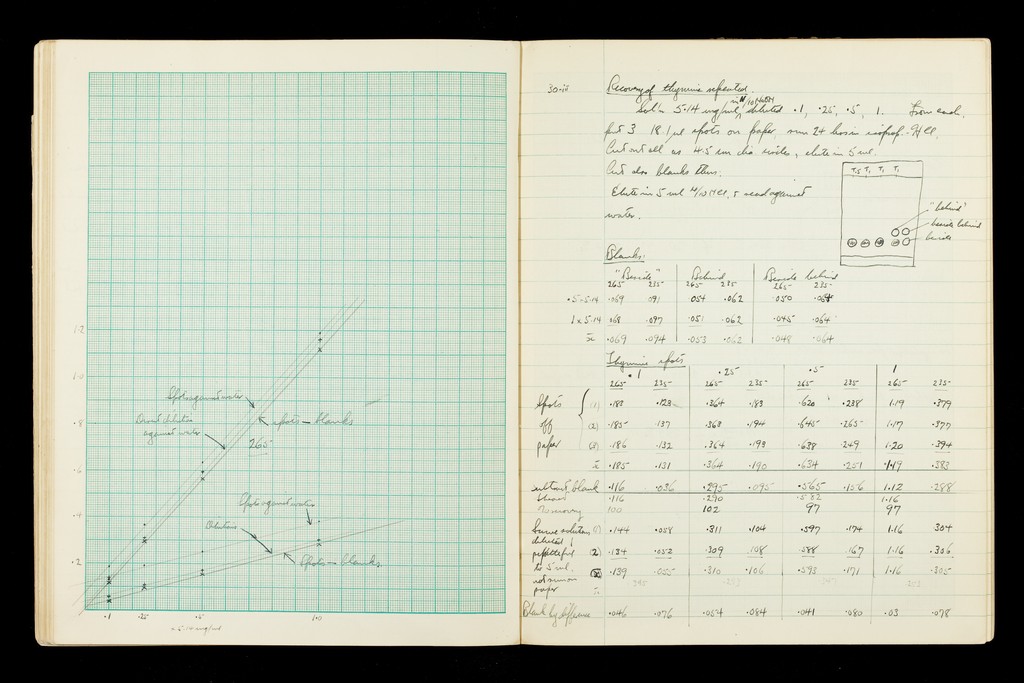 1.2
1.0
.8
.6
.4
.2
Spots against water
Direct dilution
against water
spots – blanks
265
Spots against water
Dilutions
Spots – blanks
.1 .25 .5 1.0
× 5.14 mg/ml
30.iii
Recovery of thymine repeated.
in N/10 NaOH
Sol'n 5.14 mg/ml, diluted .1, .25, .5, 1. From each,
put 3 spots on paper, run 24 hrs in isoprop.-HCl.
Cut out all as 4.5 cm dia. circles, elute in 5 ml.
Cut also blanks thus:
Elute in 5 ml N/10 HCl, & read against
water.
"behind"
beside behind
beside
Blanks:
"Beside" Behind Beside behind
265 235 265 235 265 235
.5 × 5.14 .069 .091 .054 .062 .050 .064
1 × 5.14 .068 .097 .051 .062 .045 .064
x̄ .069 .094 .053 .062 .048 .064
Thymine spots
.1 .25 .5 1
265 235 265 235 265 235 265 235
Spots (1) .183 .123 .364 .183 .620 .238 1.19 .379
off (2) .185 .137 .363 .194 .645 .265 1.17 .377
paper (3) .186 .132 .364 .193 .638 .249 1.20 .394
x̄ .185 .131 .364 .190 .634 .251 1.19 .383
subtract blank .116 .036 .295 .095 .565 .156 1.12 .288
.116 .290 .582 1.16
% recovery 100 102 97 97
Same solutions (1) .144 .058 .311 .104 .597 .174 1.16 .304
diluted
(2) .134 .052 .309 .108 .588 .167 1.16 .306
to 5 ml. .139 .055 .310 .106 .593 .171 1.16 .305
not run on
paper
Blank by difference .046 .076 .054 .084 .041 .080 .03 .078